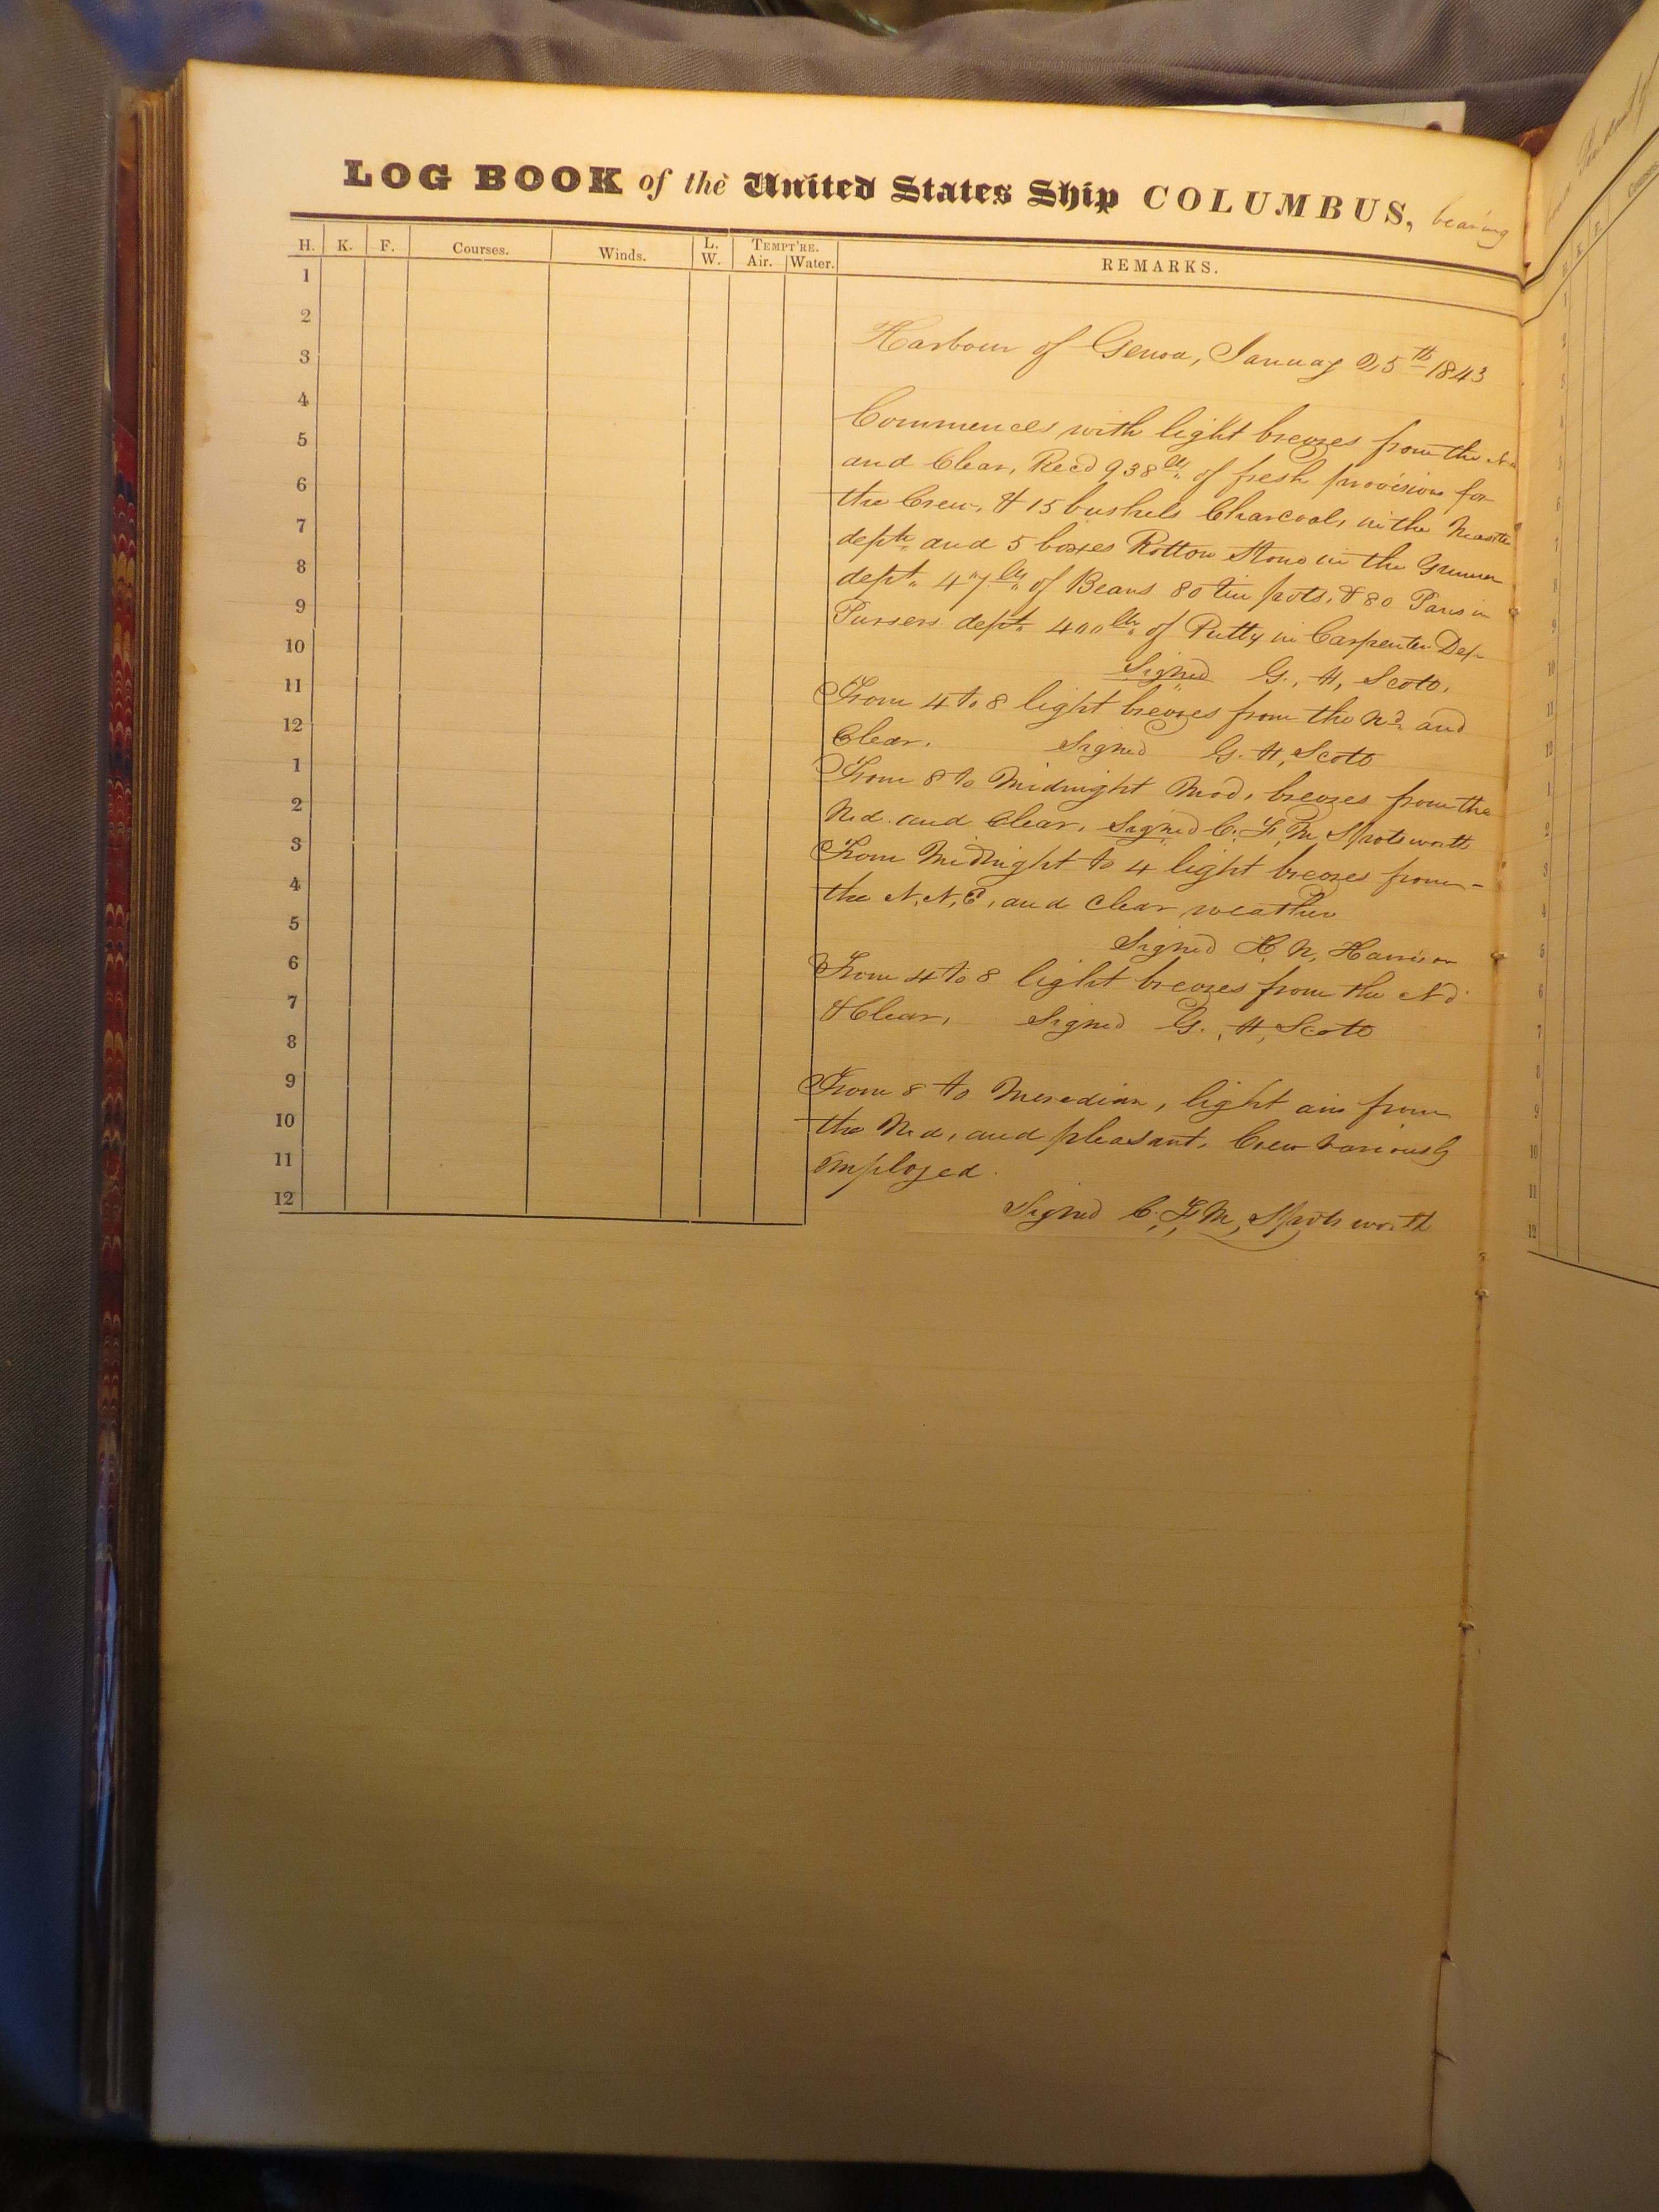 LOG BOOK of the United States Ship COLUMBUS, bearing
H. K. F. Courses. Winds. L. W. TEMPT'RE. Air. Water. REMARKS.
1
2
3
4
5
6
7
8
9
10
11
12
1
2
3
4
5
6
7
8
9
10
11
12
Harbour of Genoa, January 25th 1843
Commences with light breezes from the Nd
and Clear, Recd 938 lbs of fresh provision for
the Crew, & 15 bushels Charcoal, in the
dept. and 5 boxes Rotton Stone in the Gunner
dept. 47 lbs of Beans 80 tin pots, & 80 Pans in
Pursers dept. 400 lbs of Putty in Carpenter Dep
Signed G. H, Scott.
From 4 to 8 light breezes from the Nd. and
Clear. Signed G. H, Scott
From 8 to Midnight Mod, breezes from the
N.d. and Clear, Signed C. F. M, Spotsworth
From Midnight to 4 light breezes from -
the N.N.E, and Clear weather
Signed H. N, Harrison
From 4 to 8 light breezes from the Nd
& Clear, Signed G. H, Scott
From 8 to Meredian, light airs from
the N.d, and pleasant, Crew variously
employed.
Signed C. F. M, Spotsworth